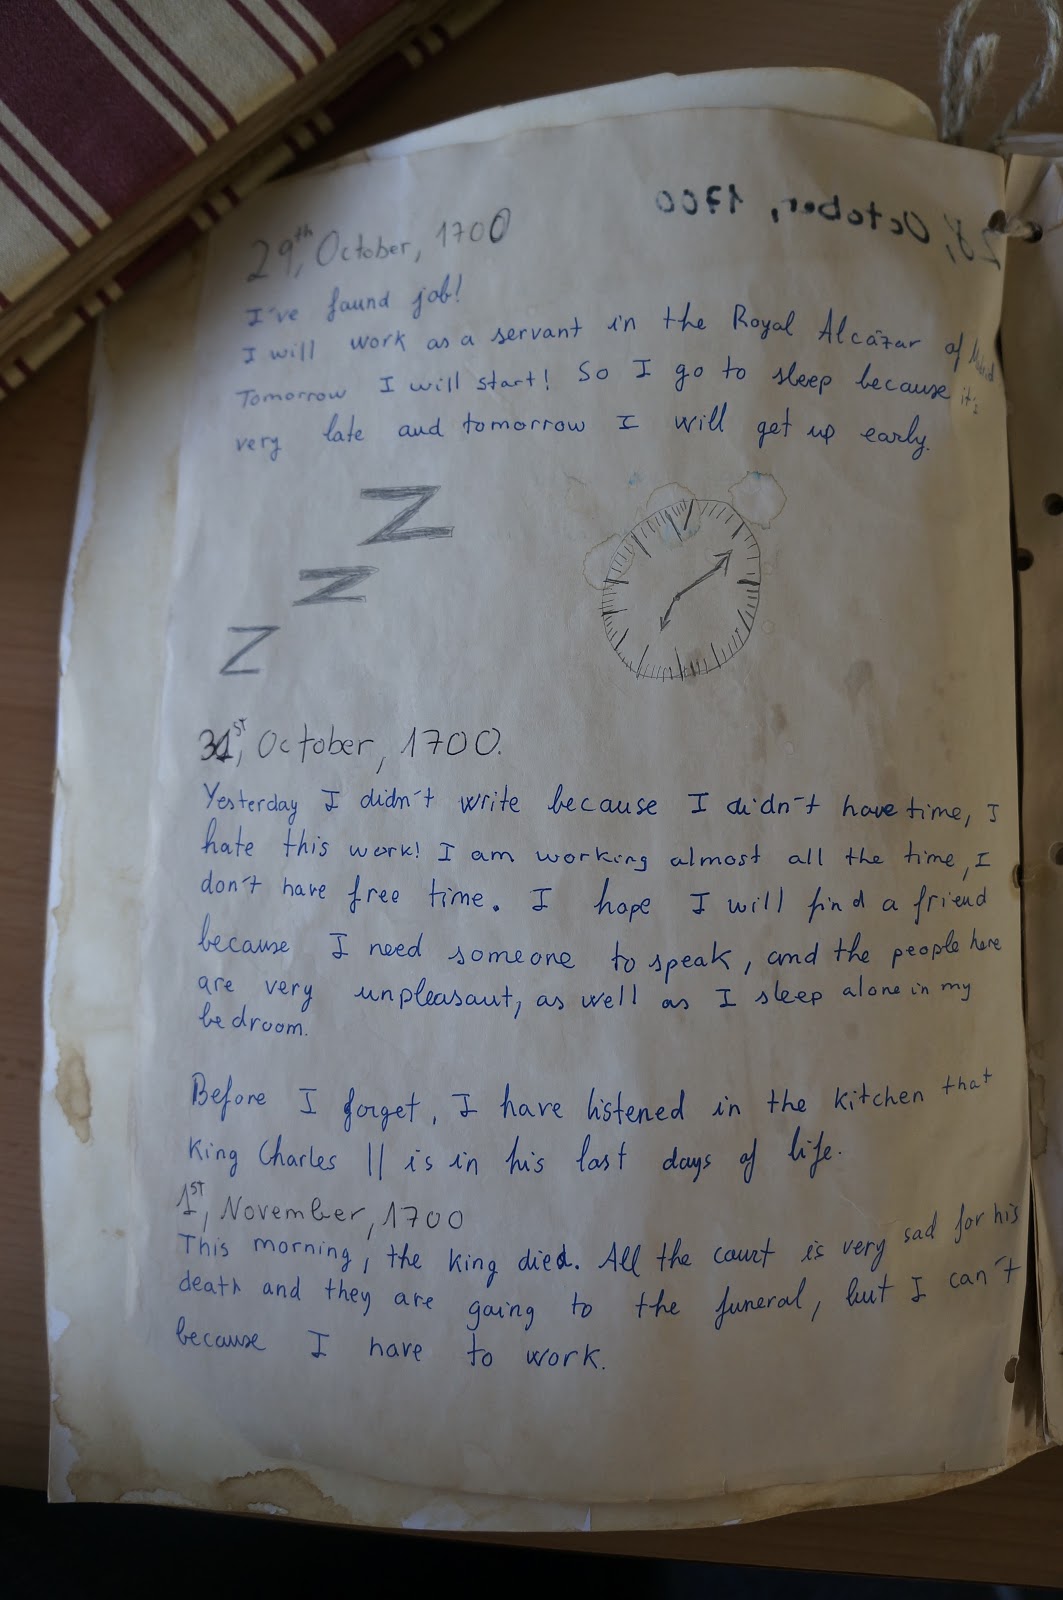 28, October, 1700
29th, October, 1700
I've faund job!
I will work as a servant in the Royal Alcázar of Madrid
Tomorrow I will start! So I go to sleep because it's
very late and tomorrow I will get up early.
Z
Z
Z
31st, October, 1700.
Yesterday I didn't write because I didn't have time, I
hate this work! I am working almost all the time, I
don't have free time. I hope I will find a friend
because I need someone to speak, and the people here
are very unpleasant, as well as I sleep alone in my
bedroom.
Before I forget, I have listened in the kitchen that
King Charles II is in his last days of life.
1st, November, 1700
This morning, the king died. All the court is very sad for his
death and they are going to the funeral, but I can't
because I have to work.